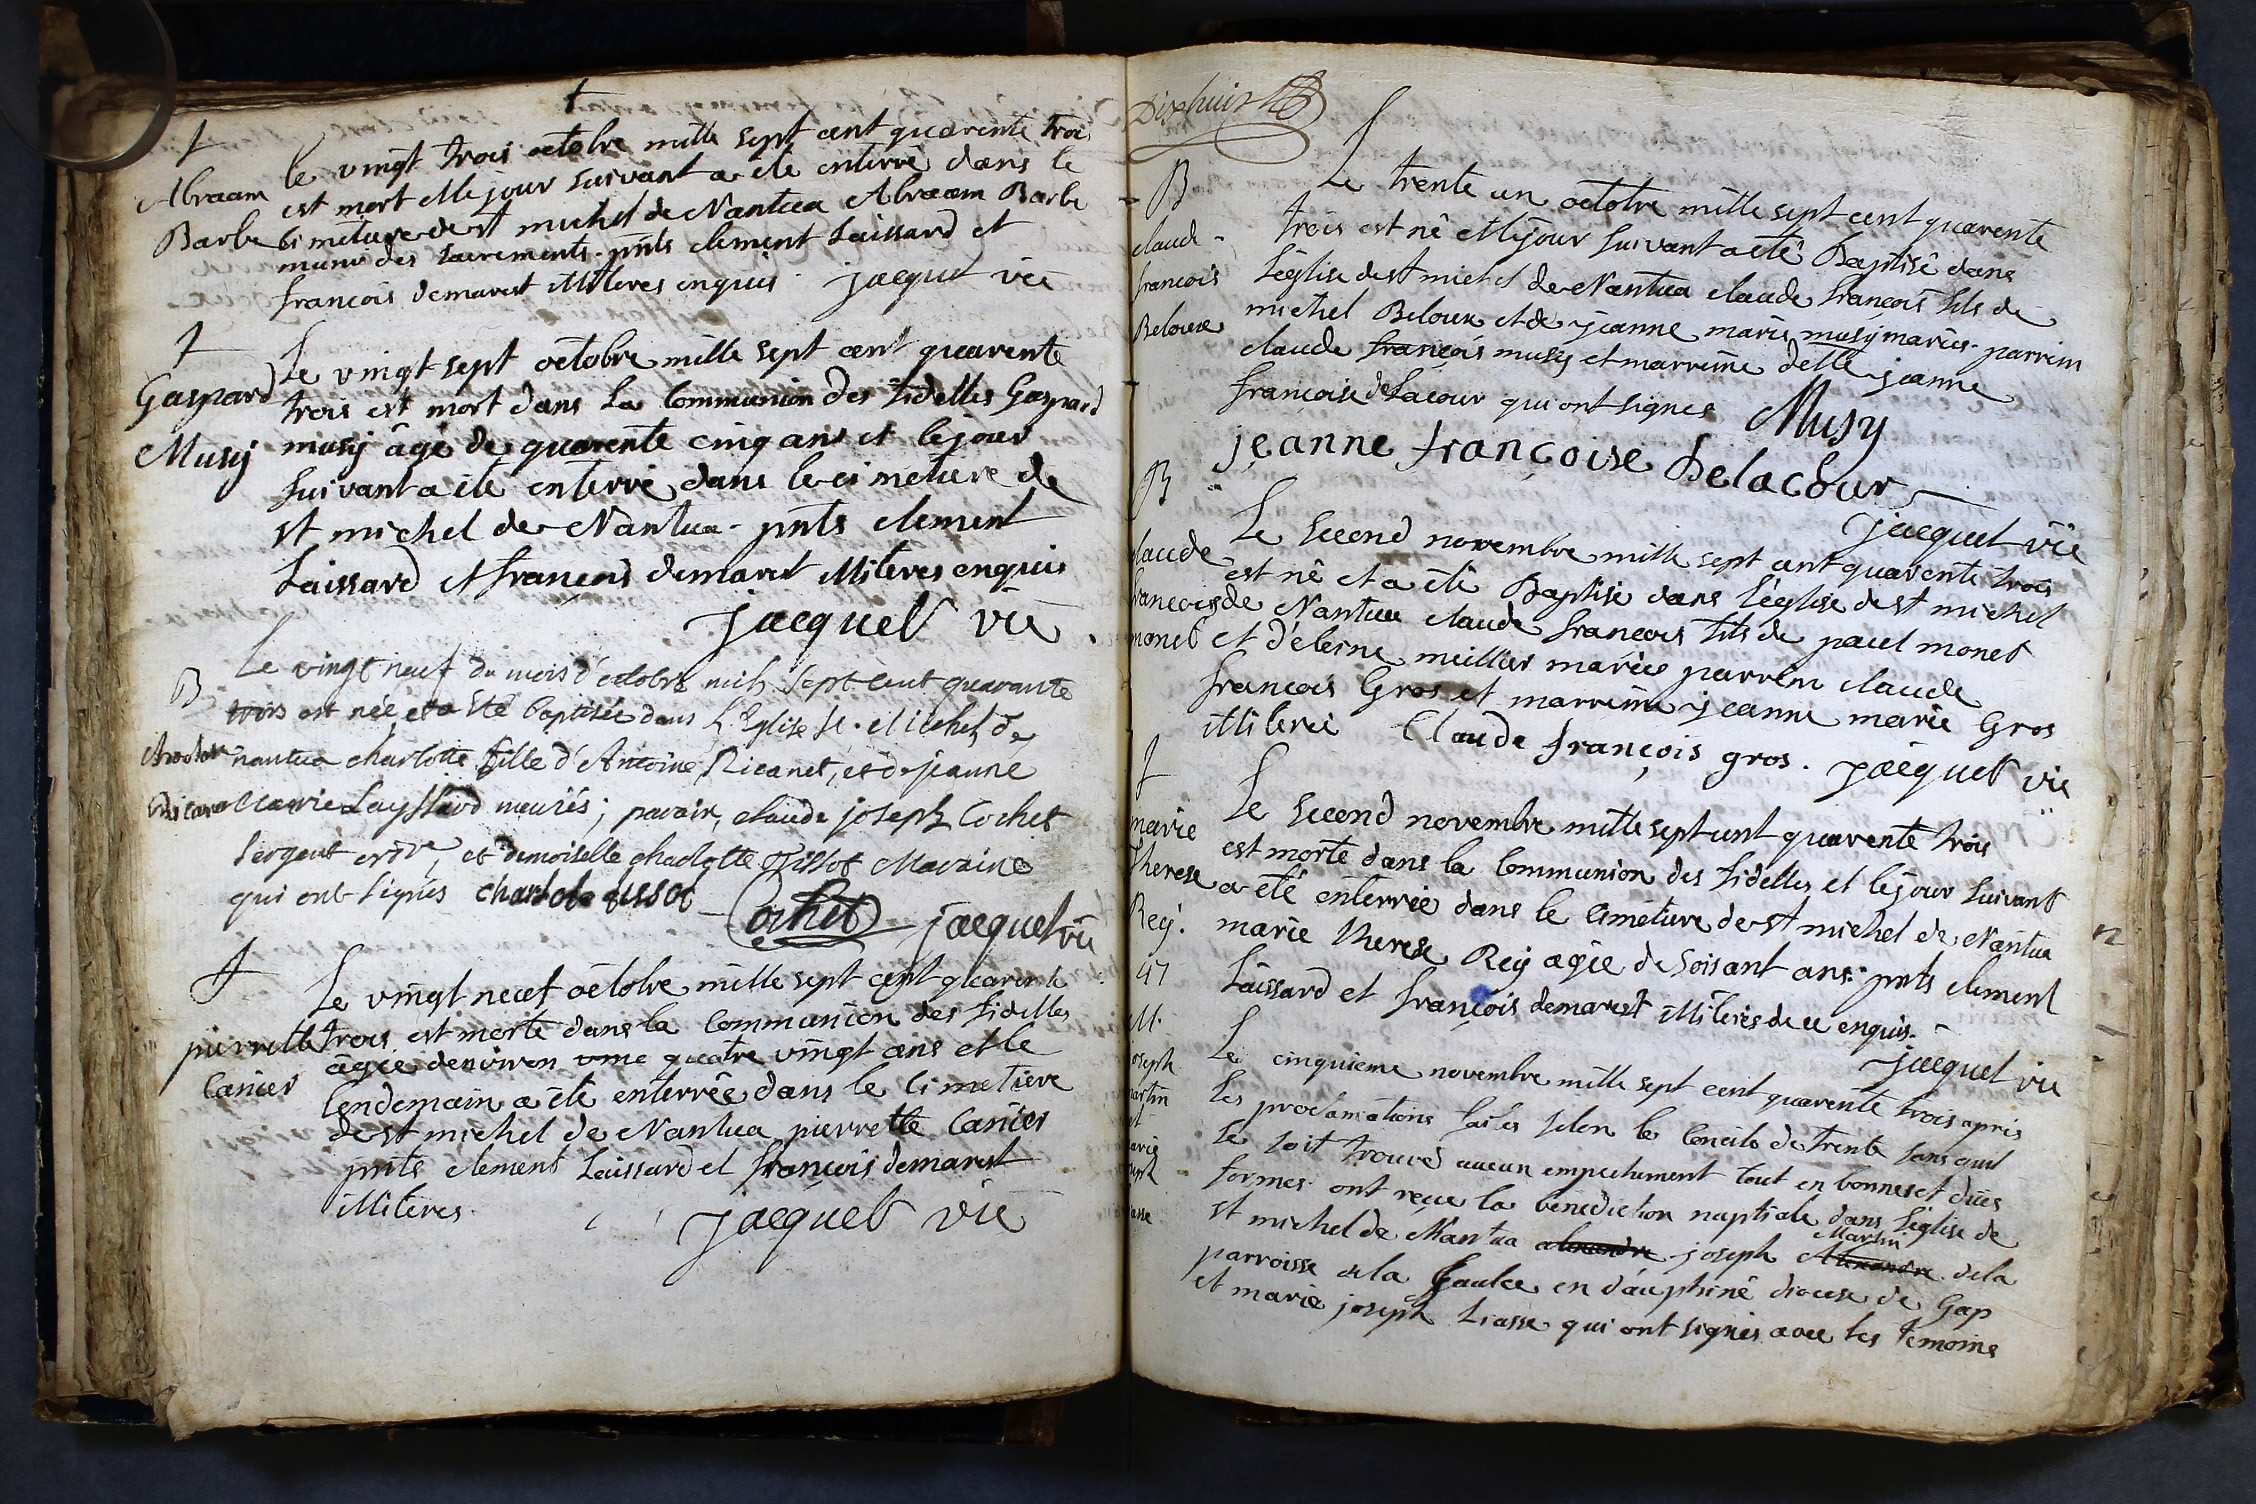 Abraam
Barbe
le vingt trois octobre mille sept cent quarente trois
est mort et le jour suivant a eté enterré dans le
cimetiere de st michel de Nantua Abraam Barbe
muni des sacrements. pnts clement Laissard et
françois demarest illiteres enquis jacquet vic
Gaspard
Musy
Le vingt sept octobre mille sept cent quarente
trois est mort dans la Communion des fidelles Gaspard
musy âgé de quarente cinq ans et le jour
suivant a été enterré dans le cimetiere de
st michel de Nantua. pnts clement
Laissard et françois demarest illiteres enquis
jacquet vic
B
Le vingt neuf du mois d'octobre mil sept cent quarante
trois est née et a eté baptisée dans L'Eglise st. Michel de
nantua charlotte fille d'Antoine Ricanet, et de jeanne
Marie Layssard mariés; parain, claude joseph Cochet
sergent et demoiselle charlotte Tissot Maraine
qui ont signés charlote tissot
Cochet jacquet vic
pierrette
Cancer
Le vingt neuf octobre mille sept cent quarente
trois est morte dans la Communion des fidelles
âgée denviron quatre vingt ans et le
lendemain a été enterrée dans le Cimetiere
de st michel de Nantua pierrette Cancer
pnts clement Laissard et françois demarest
illiteres.
jacquet vic
Dixhuit
B
claude
françois
Beloux
Le trente un octobre mille sept cent quarente
trois est né et le jour suivant a eté Baptisé dans
l'église de st michel de Nantua claude françois fils de
michel Beloux et de jeanne marie musy mariés. parrein
claude françois musy et marreine delle jeanne
françoise de Lacour qui ont signes Musy
jeanne françoise Delacour
jacquet vic
B
claude
francois
monet
Le second novembre mille sept cent quarente trois
est né et a été Baptisé dans l'église de st michel
de Nantua claude francois fils de paul monet
et d'etienne meillier mariés parrein claude
francois Gros et marreine jeanne marie Gros
illiterée Claude françois gros. jacquet vic
marie
Therese
Rey.
47
Le second novembre mille sept cent quarente trois
est morte dans la Communion des fidelles et le jour suivant
a été enterrée dans le Cimetiere de st michel de Nantua
marie therese Rey agée de soisant ans. pnts clement
Laissard et françois demarest illiteres de ce enquis.
jacquet vic
M.
joseph
martin
et
marie
joseph
Liasse
Le cinquieme novembre mille sept cent quarente trois apres
les proclamations faites selon le Concile de trente sans quil
se soit trouvé aucun empechement tout en bonnes et dües
formes. ont reçu la bénédiction nuptiale dans l'église de
st michel de Nantua alexandre joseph Alexandre Martin de la
parroisse de la Saulce en dauphiné diocese de Gap
et marie joseph Liasse qui ont signés avec les temoins